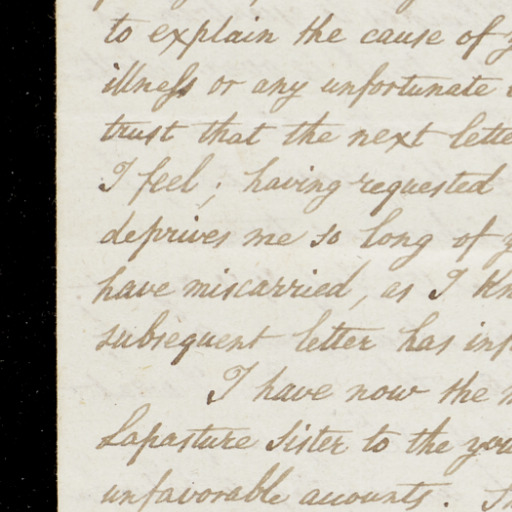 to explain the cause of
illness or any unfortunate
trust that the next
I feel; having requested
deprives me so long of
have miscarried, as I
subsequent letter has
I have now the
Lapasture Sister to the
unfavorable accounts.